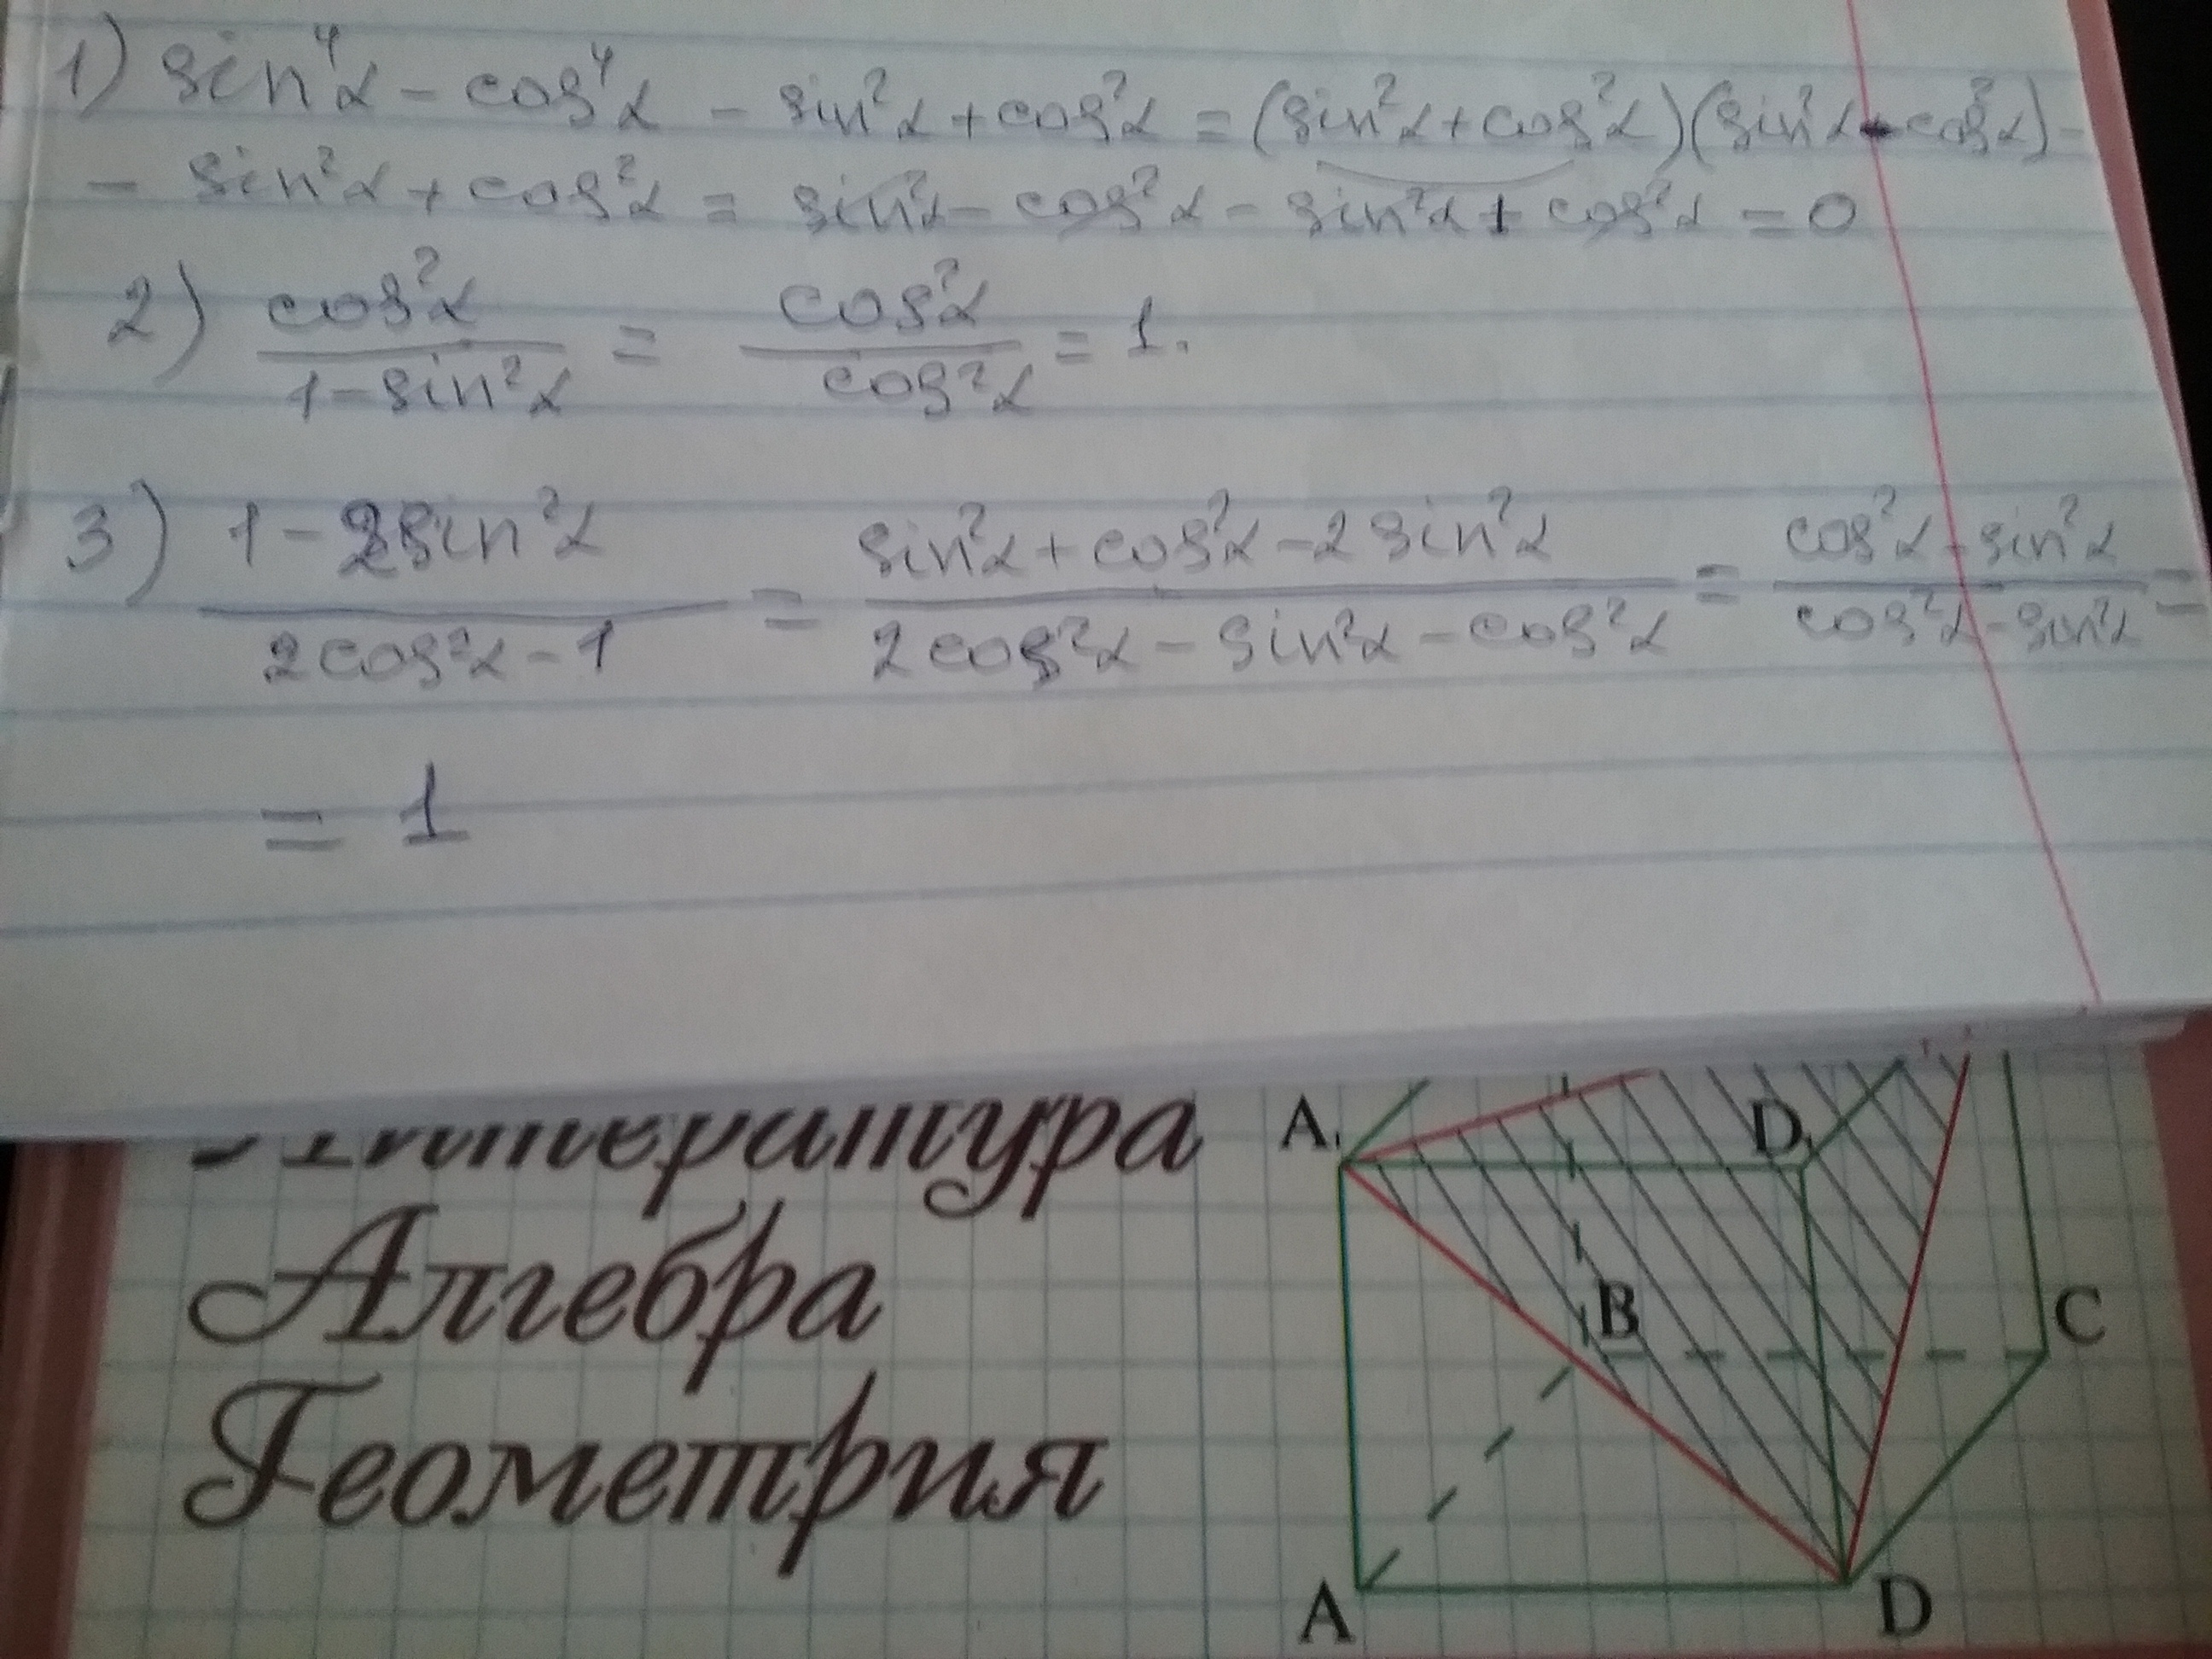 1) sin⁴α - cos⁴α - sin²α + cos²α = (sin²α + cos²α)(sin²α - cos²α) -
- sin²α + cos²α = sin²α - cos²α - sin²α + cos²α = 0
2) cos²α / 1 - sin²α = cos²α / cos²α = 1.
3) 1 - 2sin²α / 2cos²α - 1 = sin²α + cos²α - 2sin²α / 2cos²α - sin²α - cos²α = cos²α - sin²α / cos²α - sin²α =
= 1
Литература
Алгебра
Геометрия
A₁ D₁
B C
A D